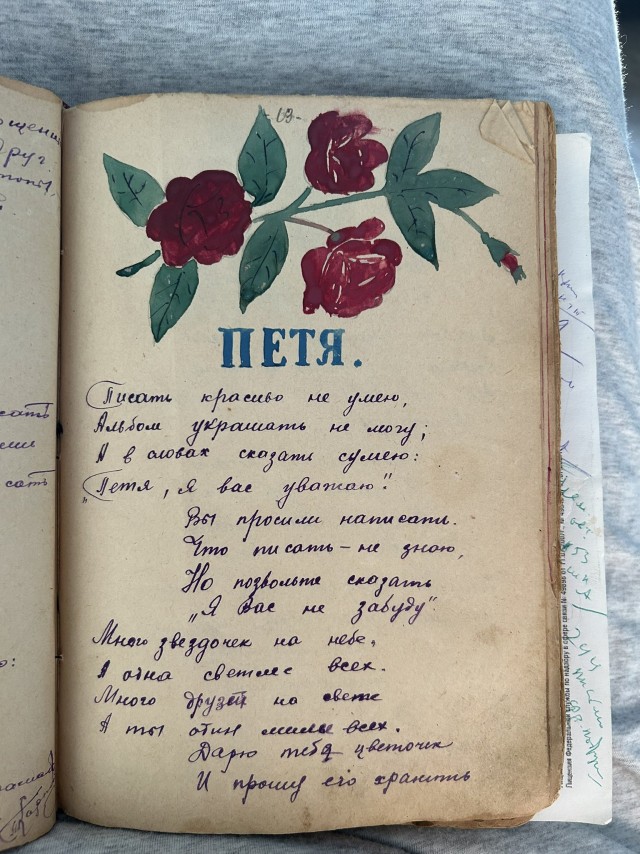 ощени
друг
-69-
ПЕТЯ.
Писать красиво не умею,
Альбом украшать не могу;
А в словах сказать сумею:
„Петя, я вас уважаю!"
Вы просили написать.
Что писать – не знаю,
Но позвольте сказать
„Я Вас не забуду"
Много звездочек на небе,
А одна светлее всех.
Много друзей на свете
А ты один милее всех.
Дарю тебе цветочек
И прошу его хранить
сать
сать